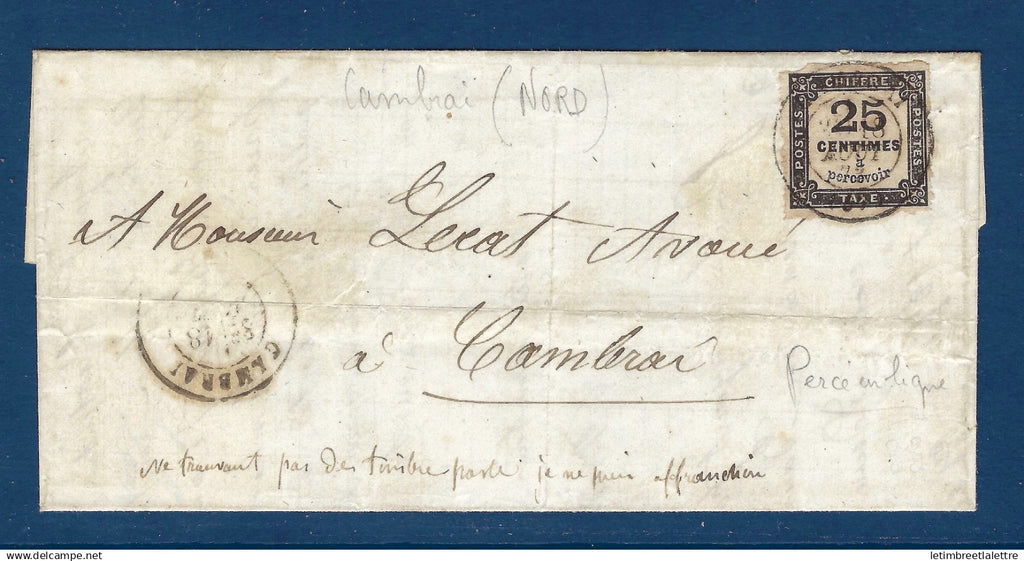 Cambrai (NORD)
CHIFFRE
POSTES
25
CENTIMES
à
percevoir
POSTES
TAXE
AOUT
A Monsieur Lecat Avoué
à Cambrai
CAMBRAI
18
Percé en ligne
Ne trouvant pas des timbre poste je ne puis affranchir
delcampe.net
letimbreetlalettre